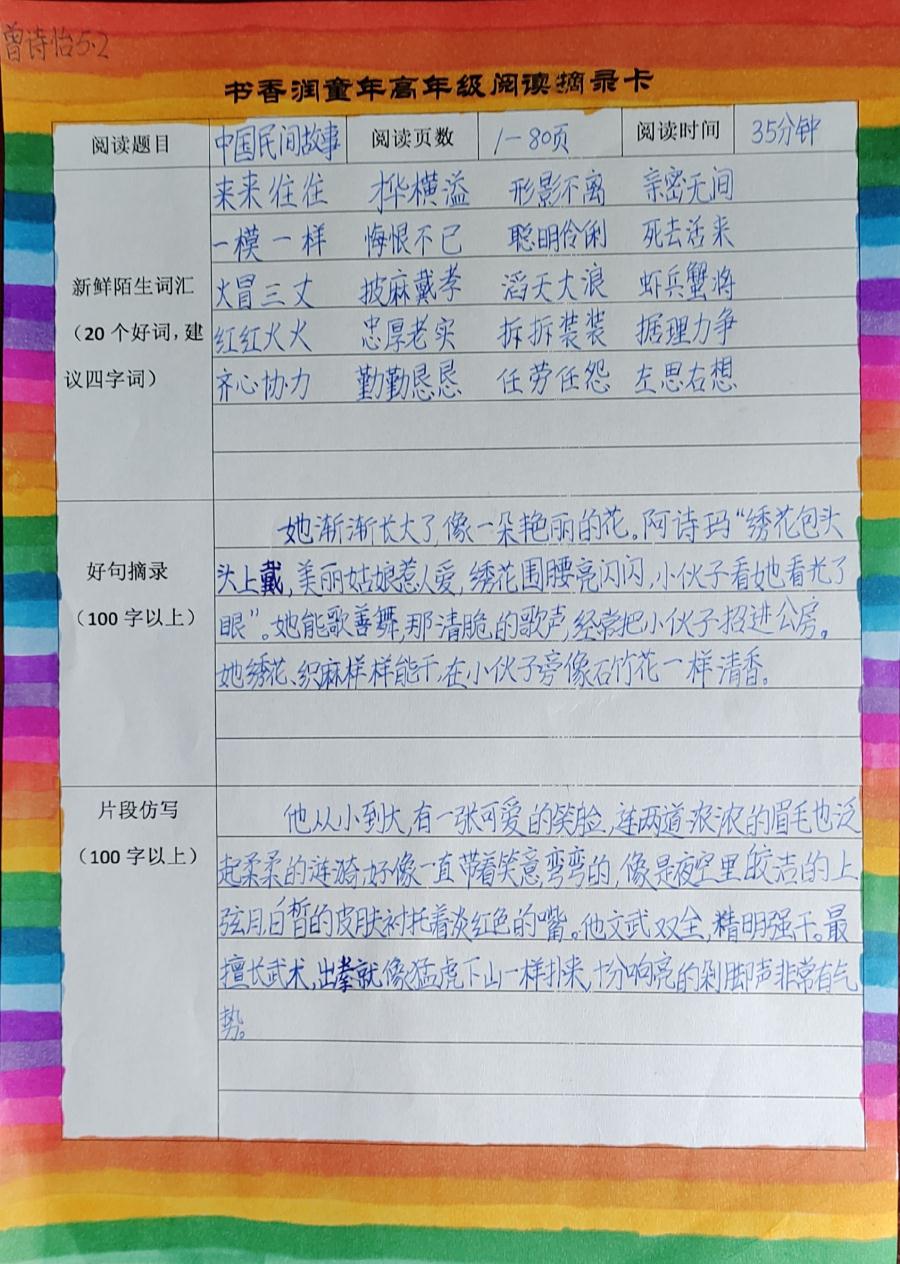 曾诗怡5.2
书香润童年高年级阅读摘录卡
阅读题目 中国民间故事 阅读页数 1-80页 阅读时间 35分钟
来来往往 才华横溢 形影不离 亲密无间
一模一样 悔恨不已 聪明伶俐 死去活来
新鲜陌生词汇 火冒三丈 披麻戴孝 滔天大浪 虾兵蟹将
(20个好词,建 红红火火 忠厚老实 拆拆装装 据理力争
议四字词) 齐心协力 勤勤恳恳 任劳任怨 左思右想
她渐渐长大了,像一朵艳丽的花。阿诗玛“绣花包头
好句摘录 头上戴,美丽姑娘惹人爱,绣花围腰亮闪闪,小伙子看她看光了
(100字以上) 眼”。她能歌善舞,那清脆的歌声,经常把小伙子招进公房。
她绣花、织麻样样能干,在小伙子旁像石竹花一样清香。
片段仿写 他从小到大,有一张可爱的笑脸,连两道浓浓的眉毛也泛
(100字以上) 起柔柔的涟漪,好像一直带着笑意,弯弯的,像是夜空里皎洁的上
弦月,白皙的皮肤衬托着淡红色的嘴。他文武双全,精明强干。最
擅长武术,出拳就像猛虎下山一样扑来,十分响亮的剁脚声非常有气
势。